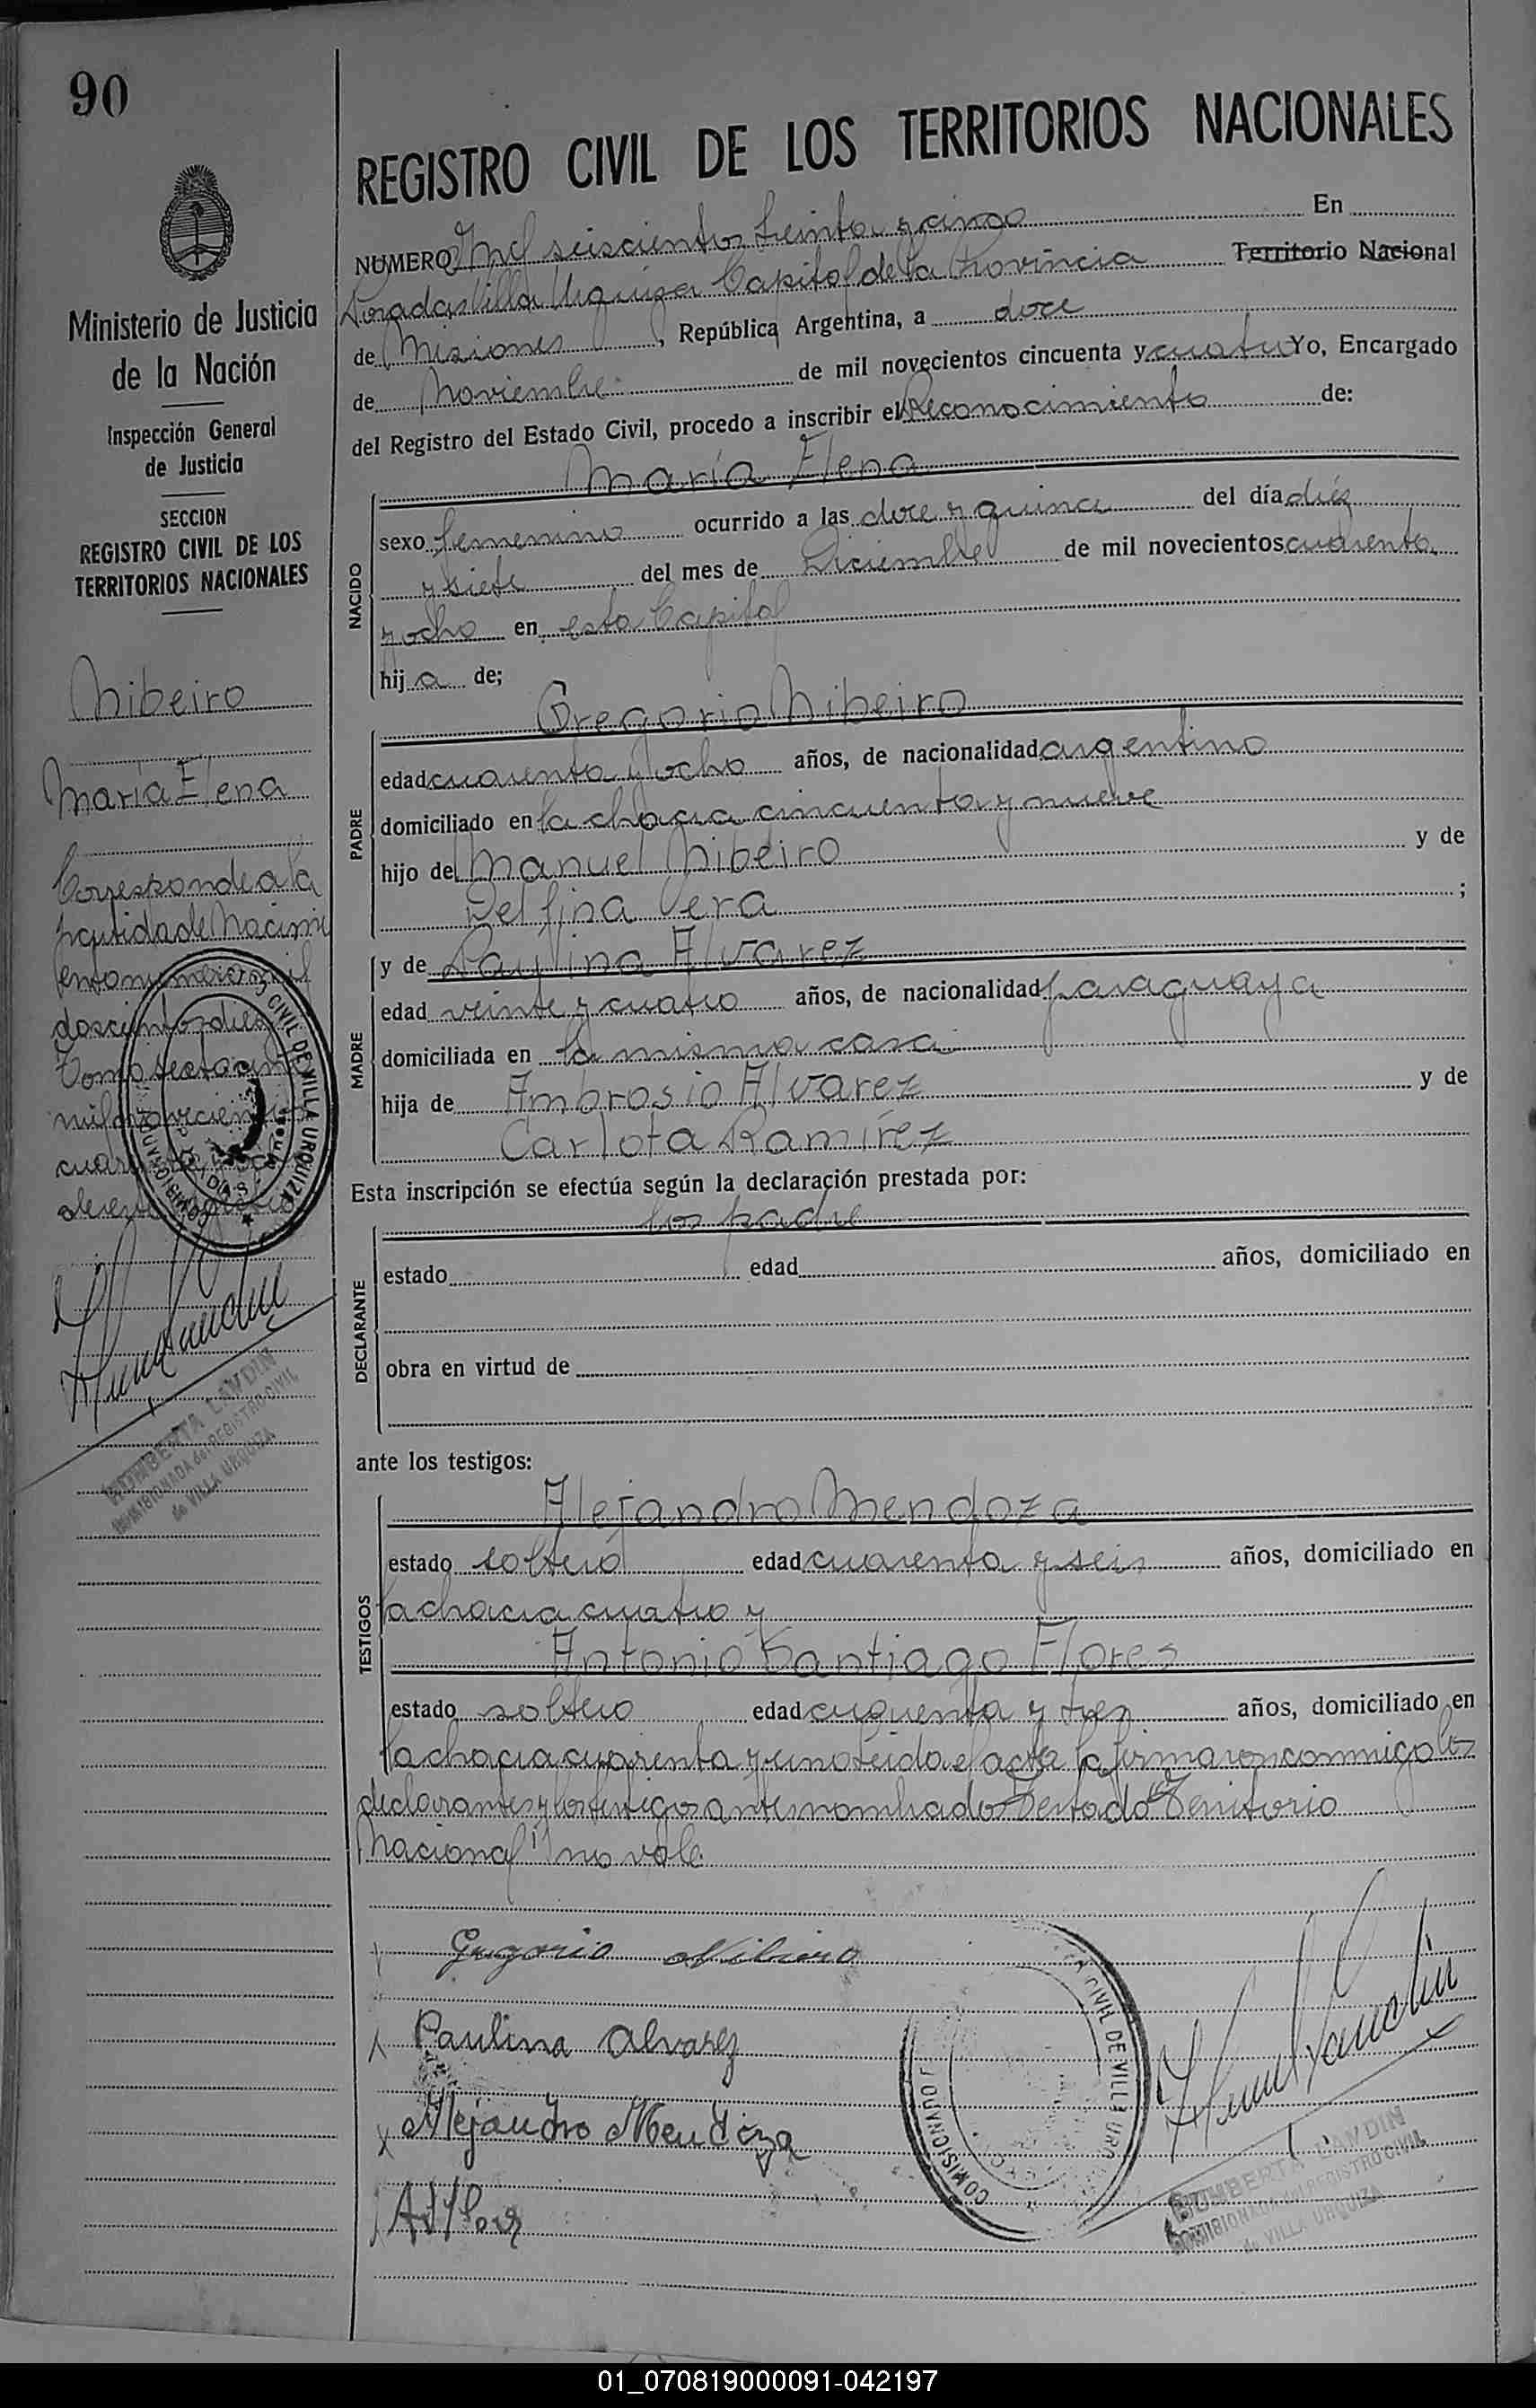 90
Ministerio de Justicia
de la Nación
Inspección General
de Justicia
SECCION
REGISTRO CIVIL DE LOS
TERRITORIOS NACIONALES
Nibeiro
María Elena
Corresponde a la
partida de Nacimi
ento numero mil
doscientos diez
Tomo
mil novecientos
cuarenta y ocho
de este
COMISIONADURIA CIVIL DE VILLA URQUIZA
HUMBERTA LANDIN
COMISIONADA del REGISTRO CIVIL
de VILLA URQUIZA
REGISTRO CIVIL DE LOS TERRITORIOS NACIONALES
NUMERO Mil seiscientos treinta y cinco En
Posadas Villa Urquiza Capital de la Provincia Territorio Nacional
de Misiones, República Argentina, a doce
de Noviembre de mil novecientos cincuenta y cuatro Yo, Encargado
del Registro del Estado Civil, procedo a inscribir el Reconocimiento de:
María Elena
NACIDO
sexo femenino ocurrido a las doce y quince del día diez
y siete del mes de Diciembre de mil novecientos cuarenta
y ocho en esta Capital
hija de;
Gregorio Nibeiro
PADRE
edad cuarenta y ocho años, de nacionalidad argentino
domiciliado en la chacra cincuenta y nueve
hijo de Manuel Nibeiro y de
Delfina Vera ;
MADRE
y de Paulina Alvarez
edad veinte y cuatro años, de nacionalidad paraguaya
domiciliada en la misma casa
hija de Ambrosio Alvarez y de
Carlota Ramírez
Esta inscripción se efectúa según la declaración prestada por:
los padre
DECLARANTE
estado edad años, domiciliado en
obra en virtud de
ante los testigos:
Alejandro Mendoza
TESTIGOS
estado soltero edad cuarenta y seis años, domiciliado en
la chacra cuatro y
Antonio Santiago Flores
estado soltero edad cuarenta y tres años, domiciliado en
la chacra cuarenta y uno Leída el acta la firmaron conmigo los
declarantes y los testigos antes nombrados Testado "Territorio
Nacional" no vale
Gregorio Nibeiro
Paulina Alvarez
Alejandro Mendoza
CIVIL DE VILLA URQ
COMISIONADU
HUMBERTA LANDIN
COMISIONADA del REGISTRO CIVIL
de VILLA URQUIZA
01_070819000091-042197